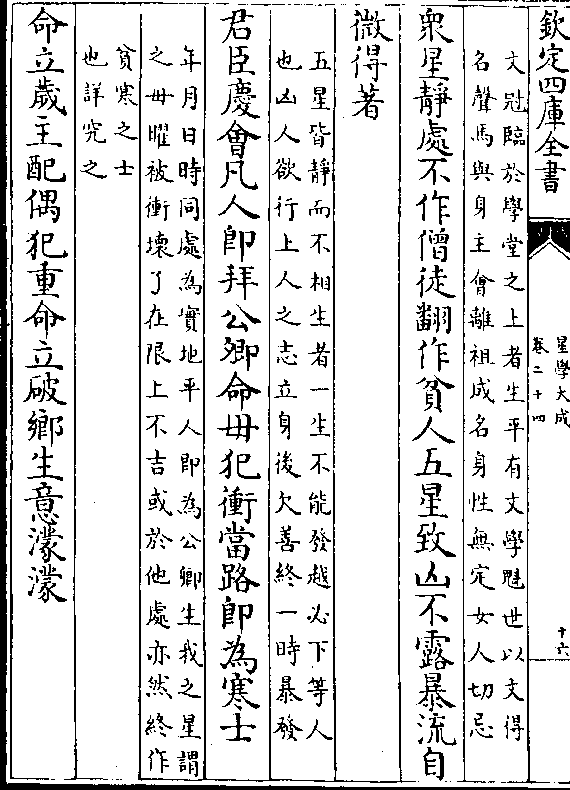 欽定四庫全書
星學大成
卷二十四
十六
文冠臨於學堂之上者生平有文學魁世以文得
名聲馬與身主會離祖成名身性無定女人切忌
衆星靜處不作僧徒翻作貧人五星致凶不露暴流自
微得著
五星皆靜而不相生者一生不能發越必下等人
也凶人欲行上人之志立身後欠善終一時暴發
君臣慶會凡人即拜公卿命毋犯衝當路即為寒士
年月日時同處為實地平人即為公卿生我之星謂
之毋曜被衝壞了在限上不吉或於他處亦然終作
貧寒之士
也詳究之
命立歲主配偶犯重命立破鄉生意濛濛